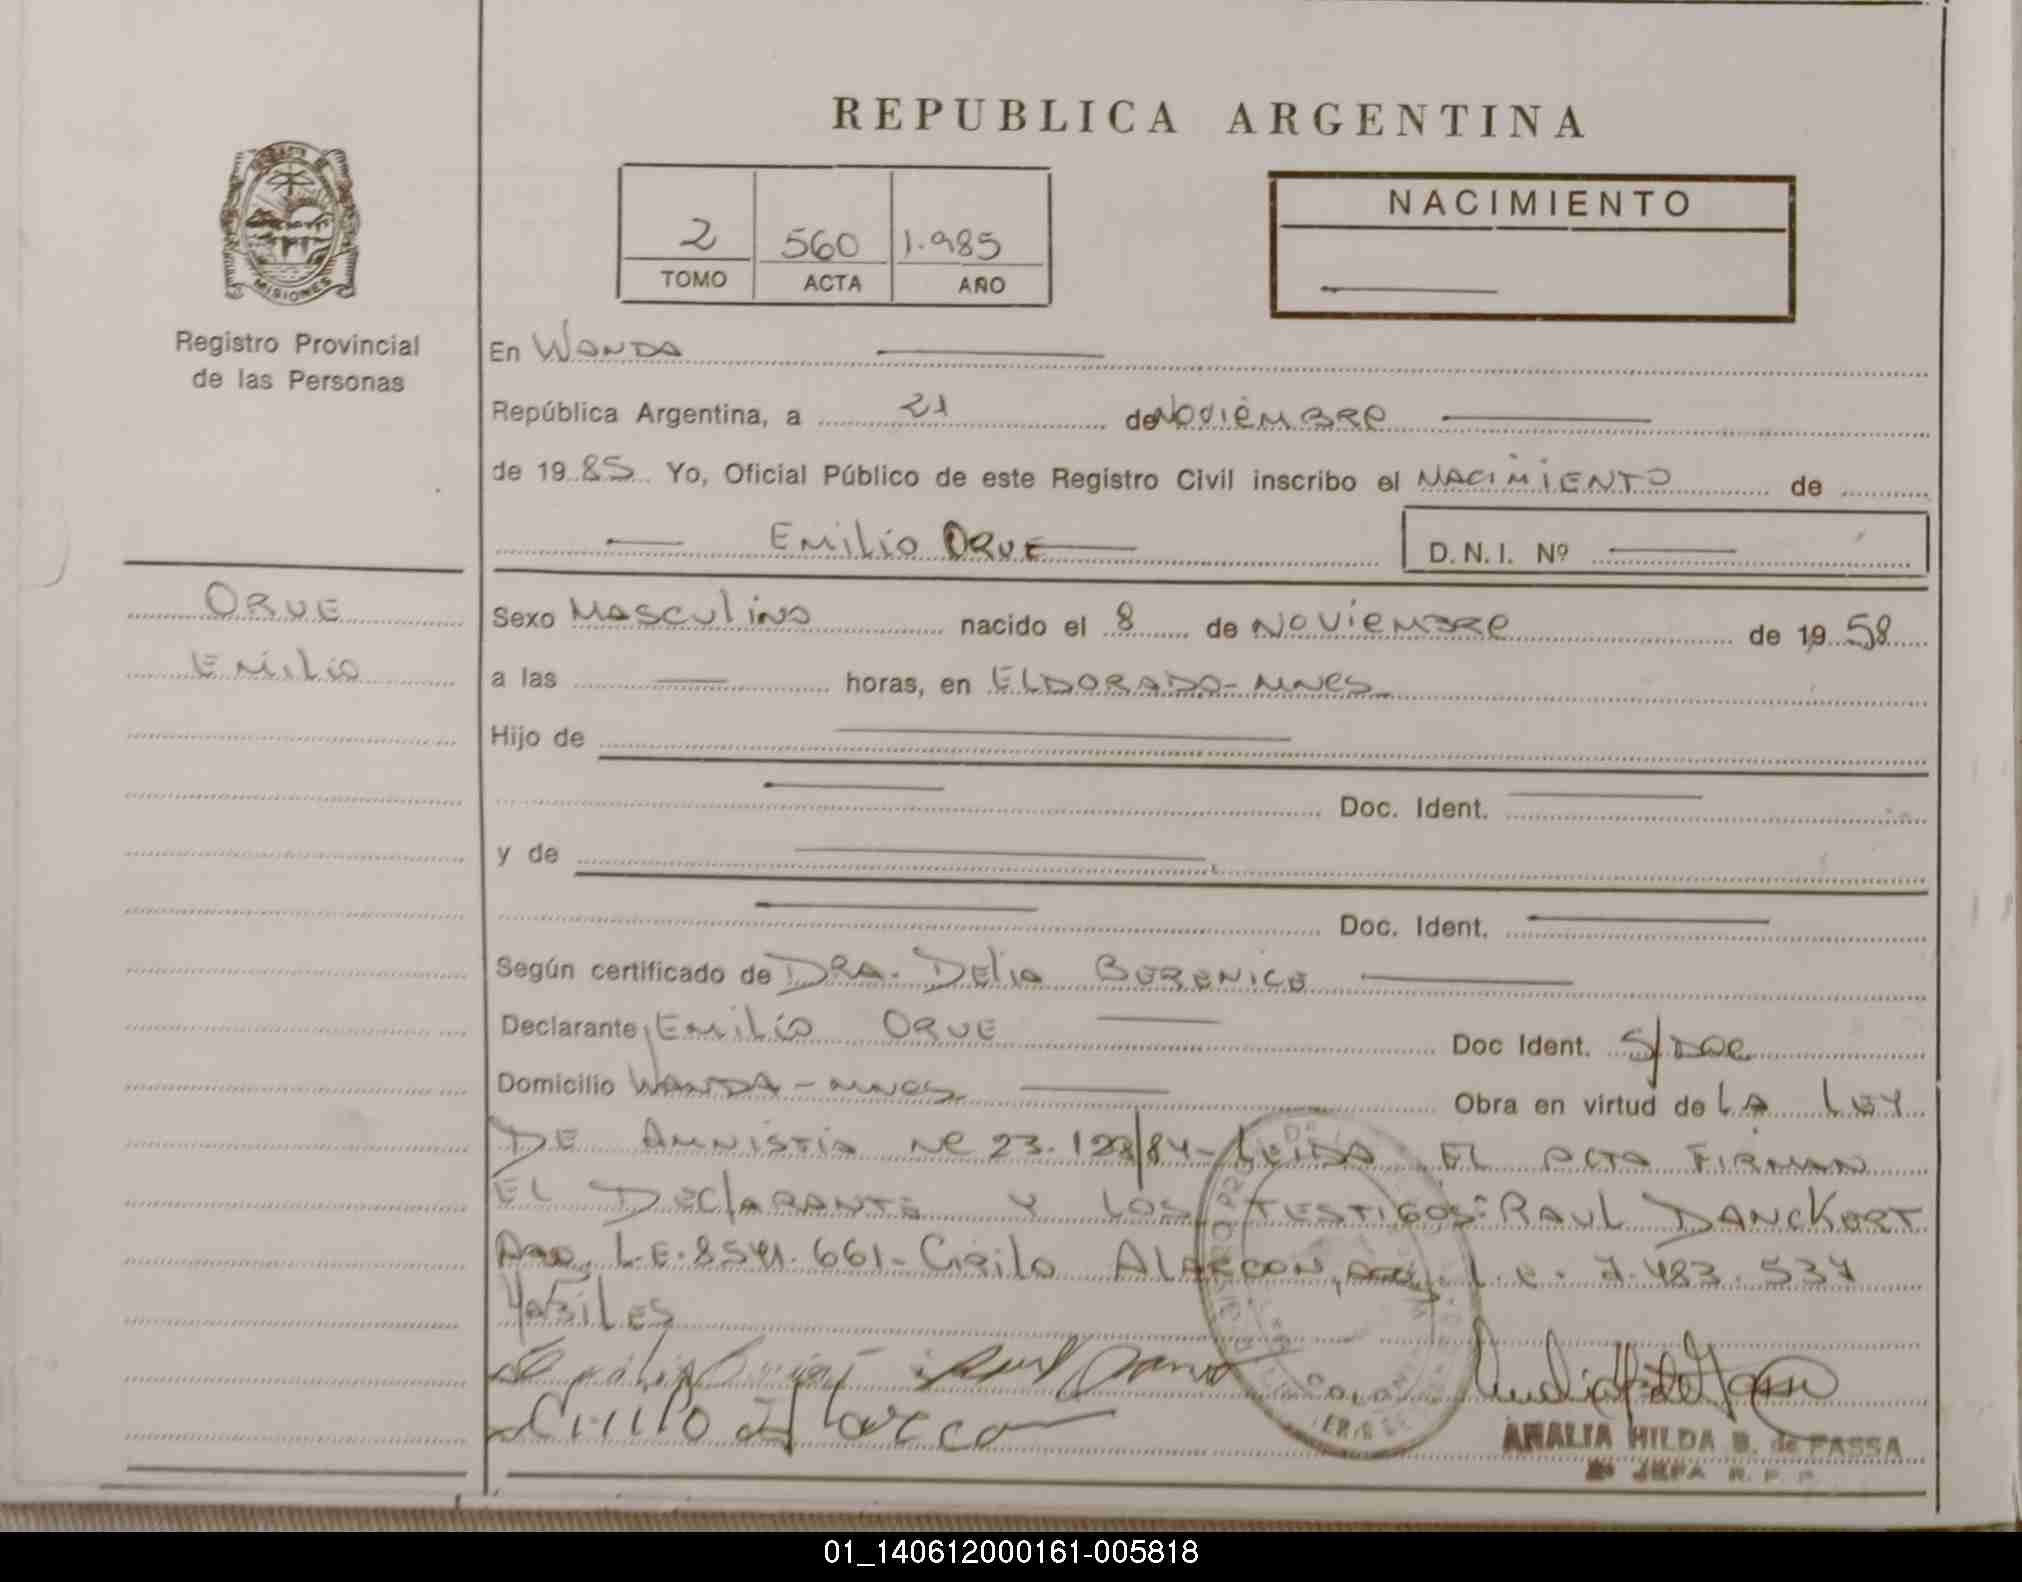 REPUBLICA ARGENTINA
MISIONES
Registro Provincial
de las Personas
2 560 1.985
TOMO ACTA AÑO
NACIMIENTO
En WANDA
República Argentina, a 21 de NOVIEMBRE
de 1985 Yo, Oficial Público de este Registro Civil inscribo el NACIMIENTO de
EMILIO ORUE D.N.I. Nº
ORUE
EMILIO
Sexo MASCULINO nacido el 8 de NOVIEMBRE de 1958
a las horas, en ELDORADO-MNES
Hijo de
Doc. Ident.
y de
Doc. Ident.
Según certificado de DRA. DELIA BERENICE
Declarante EMILIO ORUE Doc Ident. S/DOC
Domicilio WANDA-MNES Obra en virtud de LA LEY
DE AMNISTIA Nº 23.128/84-LEIDA EL ACTA FIRMAN
EL DECLARANTE Y LOS TESTIGOS: RAUL DANCKERT
L.E. 8541.661-Cirilo ALARCON, L.e. 7.483.537
HABILES
Cirilo Alarcon
ANALIA HILDA B. de FASSA
JEFA R.P.P.
01_140612000161-005818